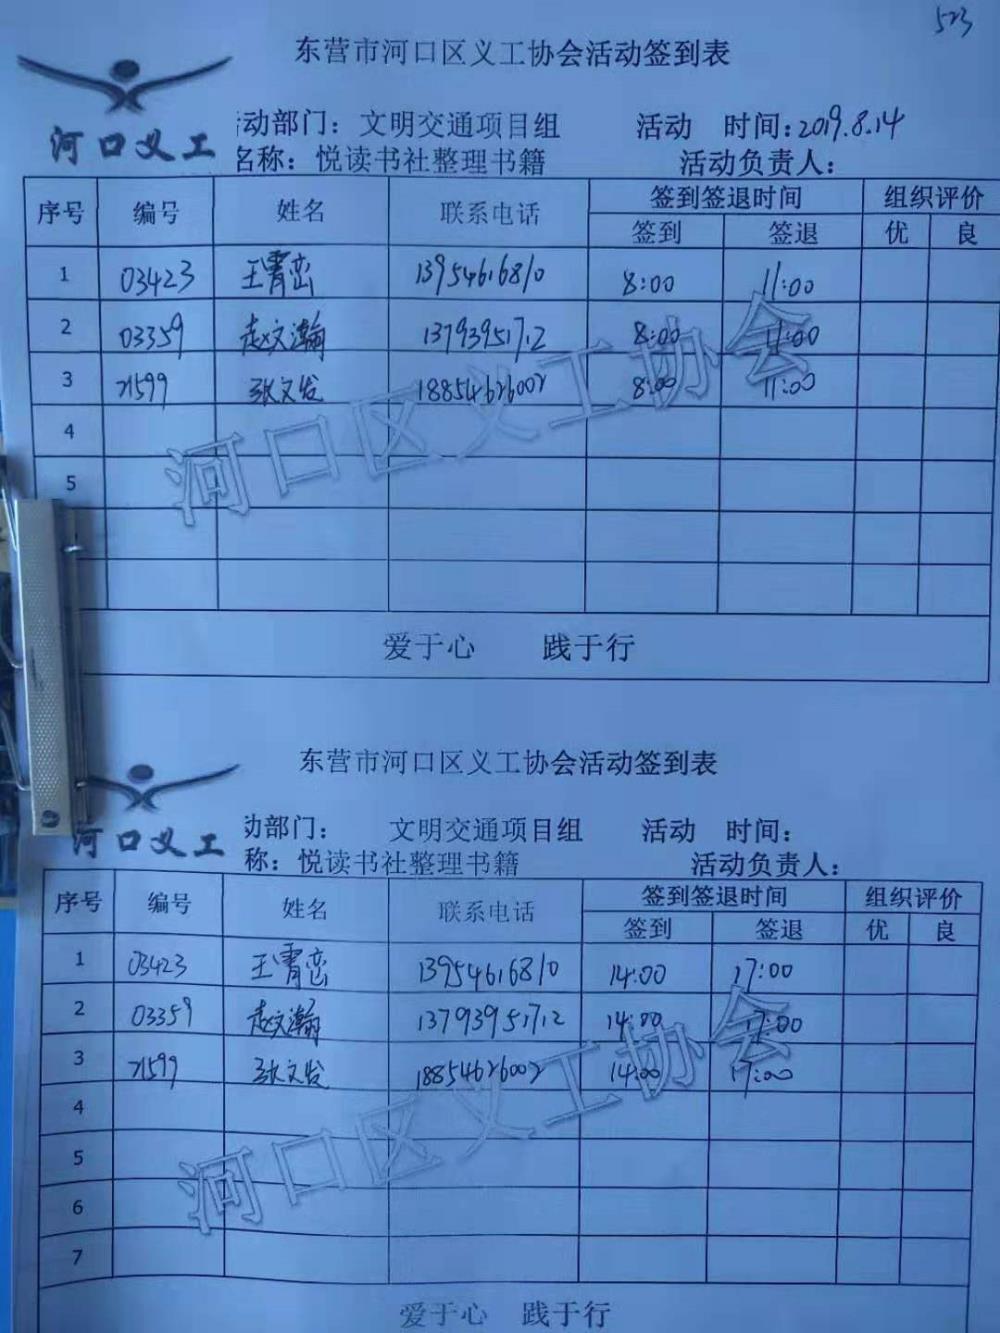 523
东营市河口区义工协会活动签到表
河口义工
动部门：文明交通项目组 活动 时间：2019.8.14
名称：悦读书社整理书籍 活动负责人：
序号 编号 姓名 联系电话 签到签退时间 组织评价
签到 签退 优 良
1 03423 王霄峦 13954616810 8:00 11:00
2 03359 赵文瀚 13793951712 8:00 11:00
3 21599 张文发 18854626002 8:00 11:00
4
5
河口区义工协会
爱于心 践于行
东营市河口区义工协会活动签到表
河口义工
动部门： 文明交通项目组 活动 时间：
称：悦读书社整理书籍 活动负责人：
序号 编号 姓名 联系电话 签到签退时间 组织评价
签到 签退 优 良
1 03423 王霄峦 13954616810 14:00 17:00
2 03359 赵文瀚 13793951712 14:00 17:00
3 21599 张文发 18854626002 14:00 17:00
4
5
6
7
河口区义工协会
爱于心 践于行